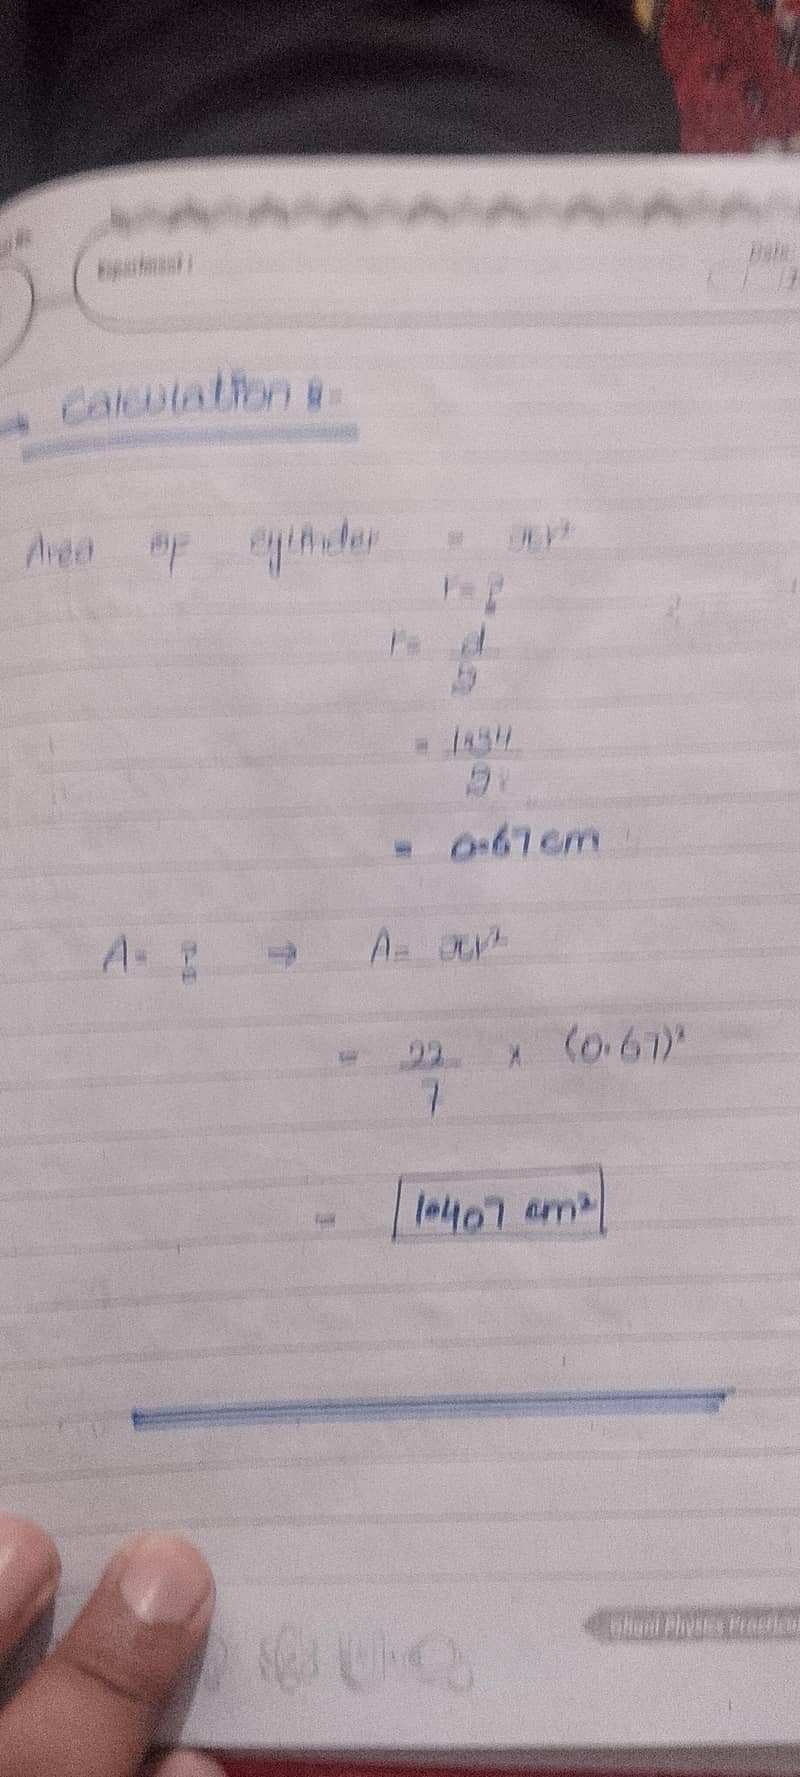 Experiment :
Date:
→ Calculation :-
Area of cylinder = πr²
r = ?
r = d
2
= 1.34
2
= 0.67 cm
A = ? ⇒ A = πr²
= 22 x (0.67)²
7
= 1.407 cm²
Ghani Physics Practical